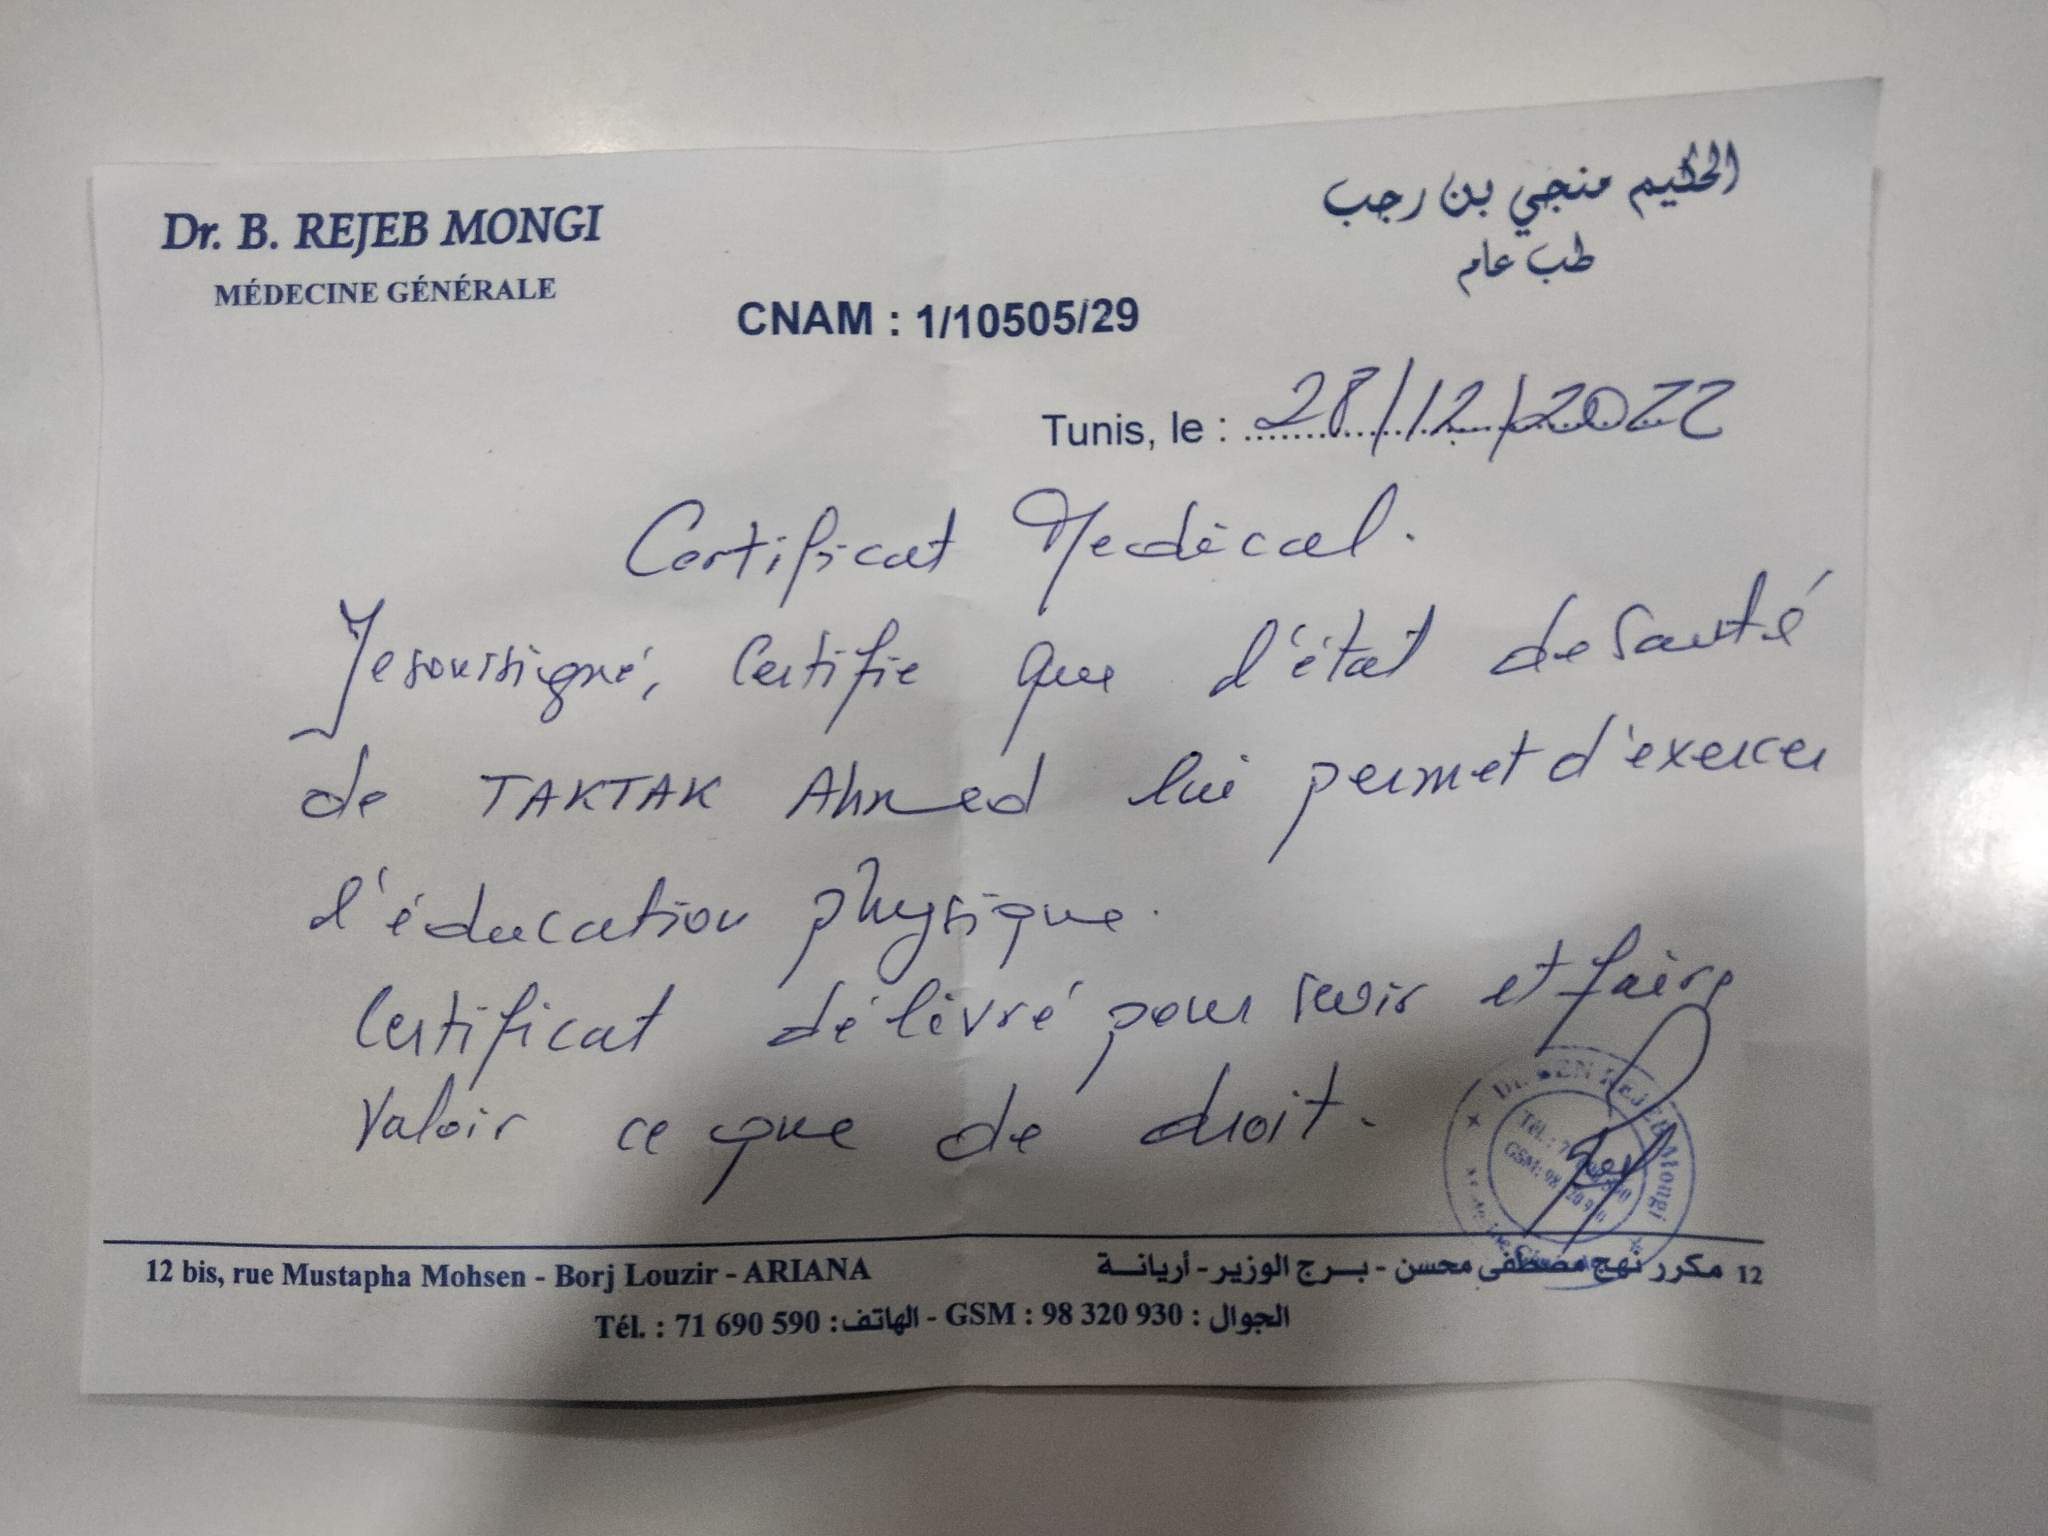 Dr. B. REJEB MONGI
MÉDECINE GÉNÉRALE
الحكيم منجي بن رجب
طب عام
CNAM : 1/10505/29
Tunis, le : 28/12/2022
Certificat Medical.
Je soussigné, Certifie que l'état de santé
de TAKTAK Ahmed lui permet d'exercer
l'éducation physique.
Certificat délivré pour servir et faire
valoir ce que de droit.
Dr. BEN Rejeb Mongi
Tél. : 71 690 590
GSM: 98 320 930
12 bis, rue Mustapha Mohsen - Borj Louzir - ARIANA
12 مكرر نهج مصطفى محسن - بـرج الوزير - أريانـة
Tél. : 71 690 590 : الهاتف - GSM : 98 320 930 : الجوال